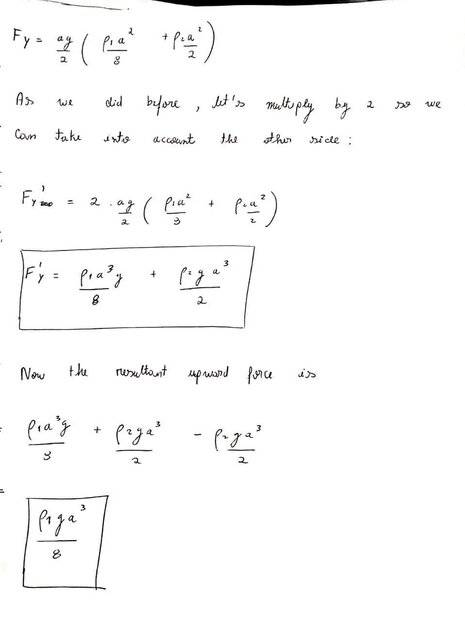 Fy = ag/2 ( ρ₁a²/8 + ρ₂a²/2 )
As we did before, let's multiply by 2 so we
can take into account the other side :
Fy' = 2 · ag/2 ( ρ₁a²/8 + ρ₂a²/2 )
Fy' = ρ₁a³g/8 + ρ₂ga³/2
Now the resultant upward force is
= ρ₁a³g/8 + ρ₂ga³/2 - ρ₂ga³/2
= ρ₁ga³/8